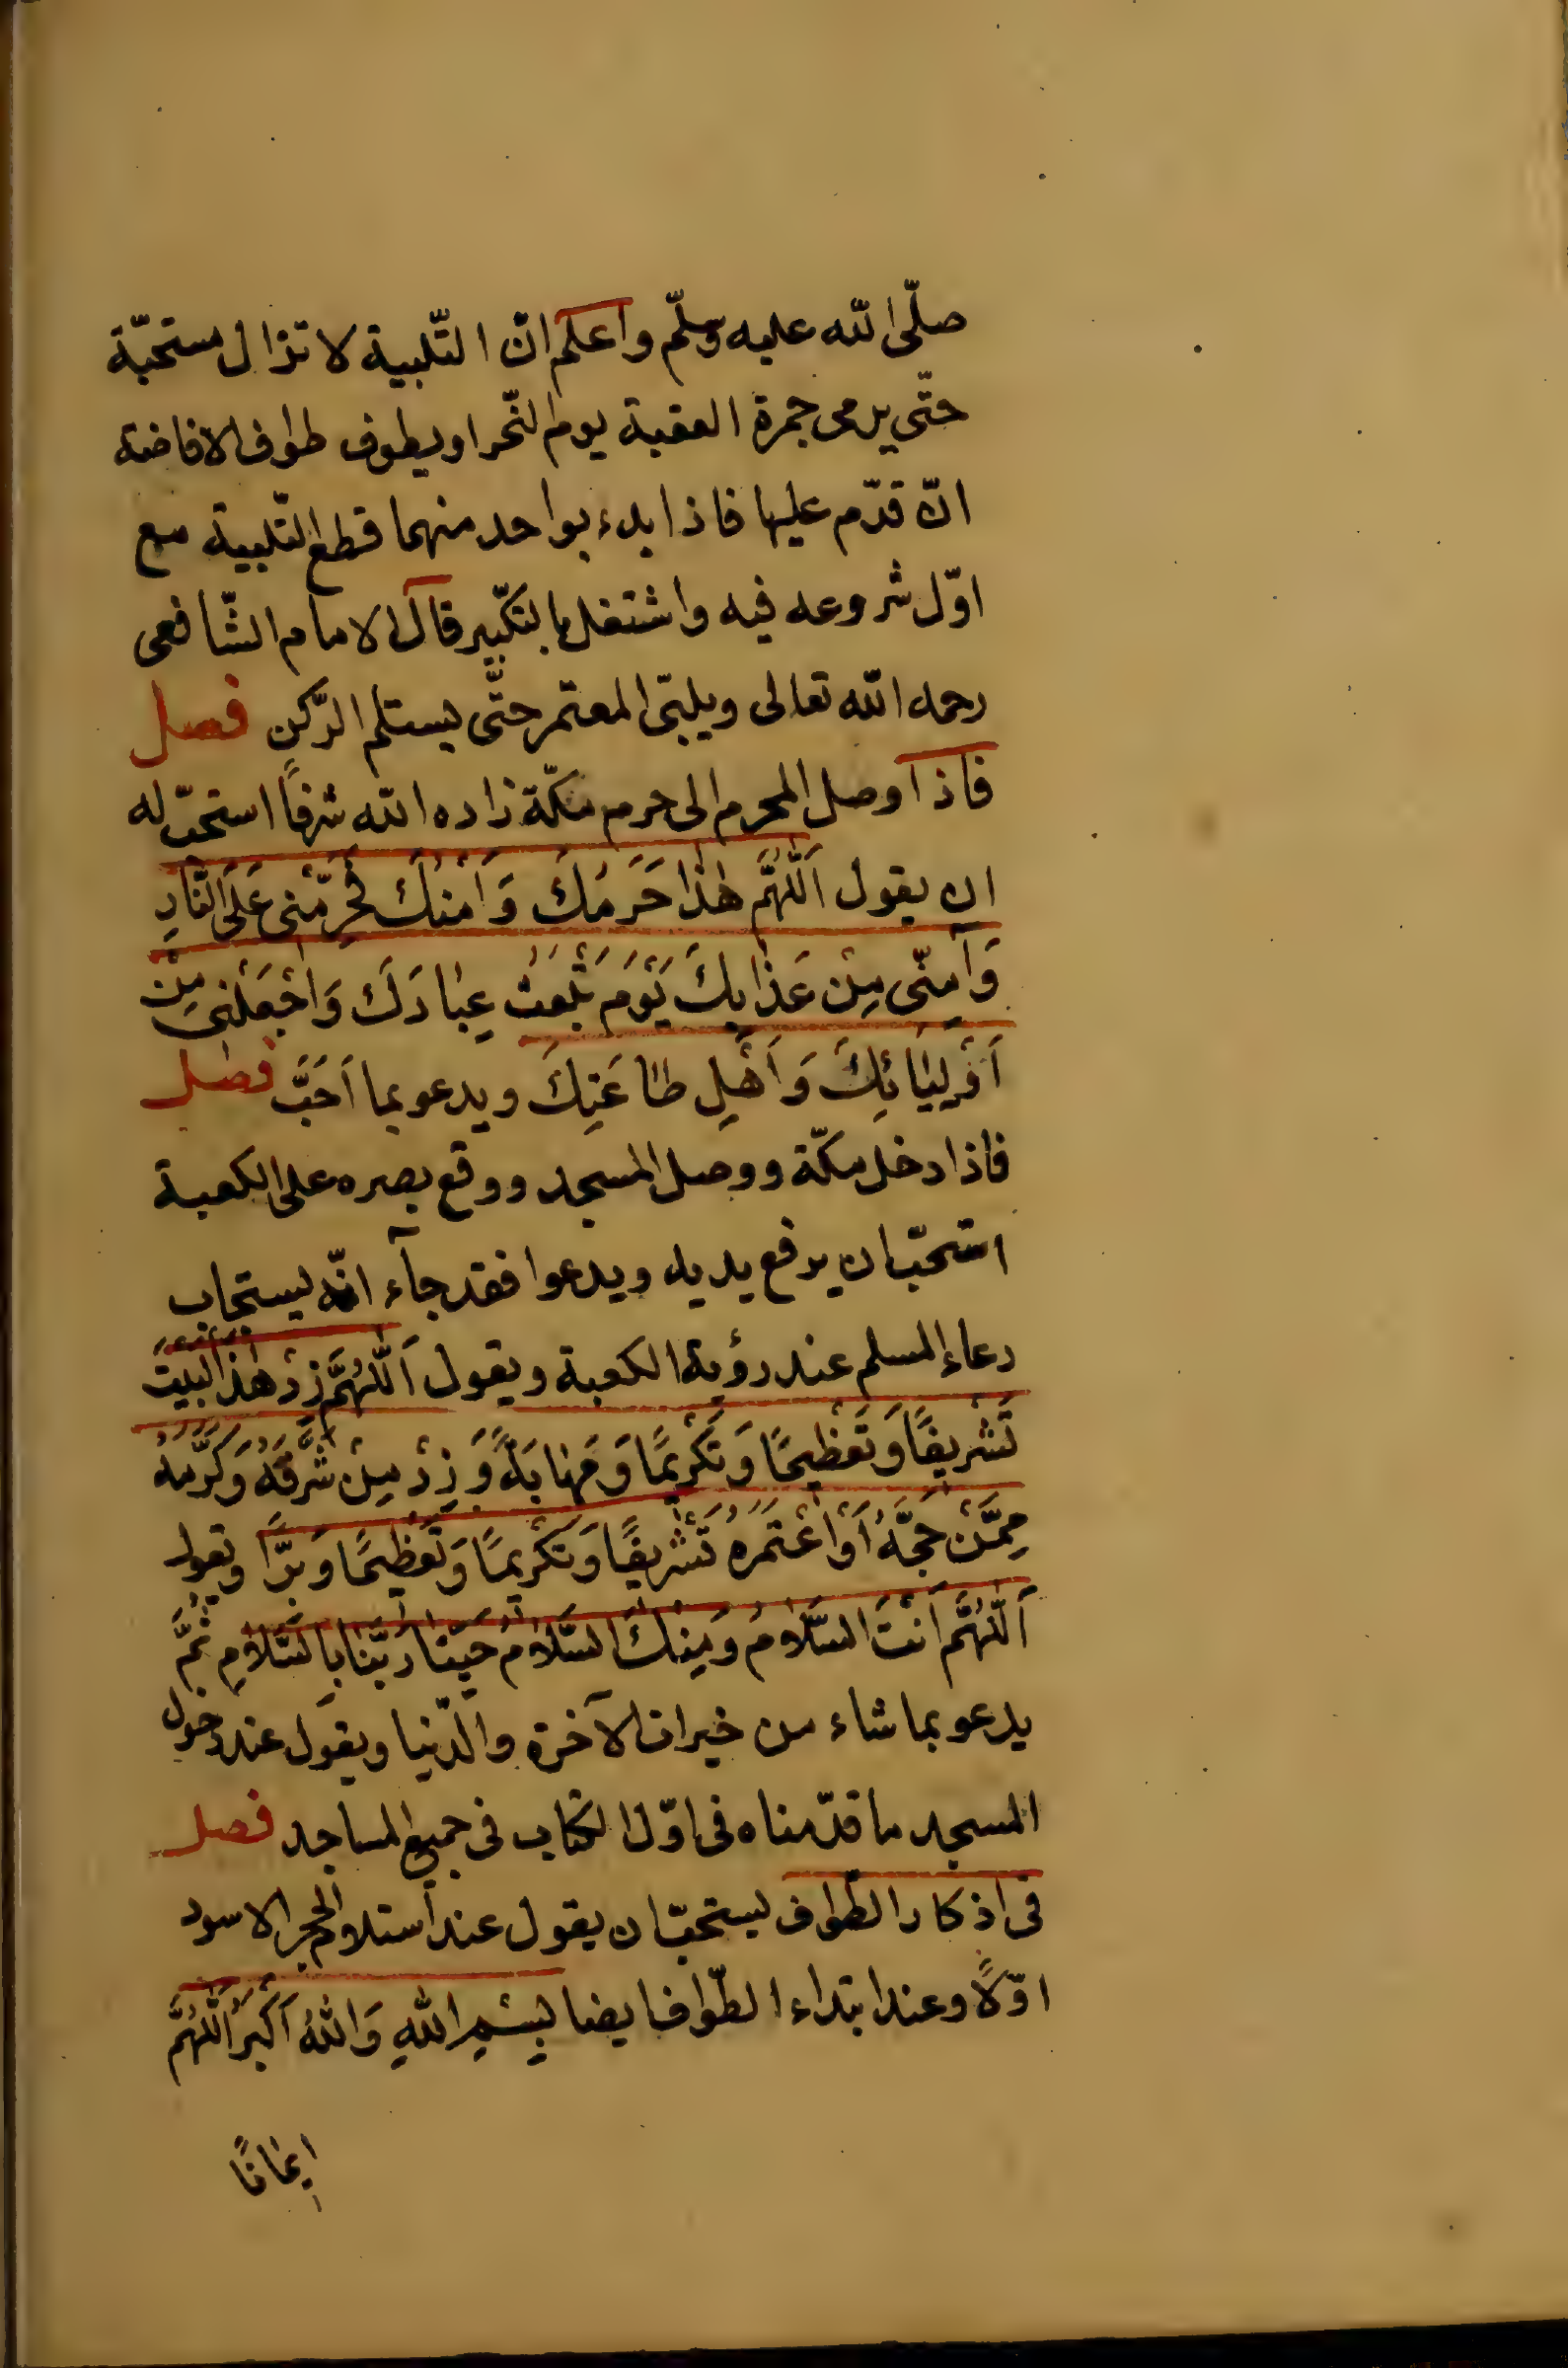 صلّى الله عليه وسلّم واعلم انّ التّلبية لا تزال مستحبّة
حتّى يرمى جمرة العقبة يوم النّحر او يطوف طواف الافاضة
انّ قدّم عليها فاذا بدء بواحد منهما قطع التّلبية مع
اوّل شروعه فيه واشتغل بالتكبير قال الامام الشّافعى
رحمه الله تعالى ويلبّى المعتمر حتّى يستلم الرّكن فصل
فاذا وصل المحرم الى حرم مكّة زاده الله شرفاً استحبّ له
ان يقول اَللّٰهُمَّ هٰذَا حَرَمُكَ وَاَمْنُكَ فَحَرِّمْنى عَلَى النَّارِ
وَآمِنّى مِنْ عَذابِكَ يَوْمَ تَبْعَثُ عِبٰادَكَ وَاجْعَلْنى مِنْ
اَوْلِيٰائِكَ وَاَهْلِ طٰاعَتِكَ ويدعو بما اَحَبَّ فصل
فاذا دخل مكّة ووصل المسجد ووقع بصره على الكعبة
استحبّ ان يرفع يديه ويدعوا فقد جآء انّه يستجاب
دعاء المسلم عند رؤية الكعبة ويقول اَللّٰهُمَّ زِدْ هٰذَا البَيْتَ
تَشْريفًا وَتَعْظيمًا وَتَكْريمًا وَمَهٰابَةً وَزِدْ مِنْ شَرَّفَهُ وَكَرَّمَهُ
مِمَّنْ حَجَّهُ اَوْ اعْتَمَرَهُ تَشْريفًا وَتَكْريمًا وَتَعْظيمًا وَبِرًّا ويقول
اَللّٰهُمَّ اَنْتَ السَّلاٰمُ وَمِنْكَ السَّلاٰمُ حَيِّنٰا رَبَّنٰا بِالسَّلاٰمِ ثُمَّ
يدعو بما شاء من خيرات الآخرة والدّنيا ويقول عند دخول
المسجد ما قدّمناه فى اوّل الكتاب فى جميع المساجد فصل
فى اذكار الطّواف يستحبّ ان يقول عند استلام الحجر الاسود
اوّلاً وعند ابتداء الطّواف ايضا بِسْمِ اللهِ وَاللهُ اَكْبَرُ اَللّٰهُمَّ
ايمٰانًا